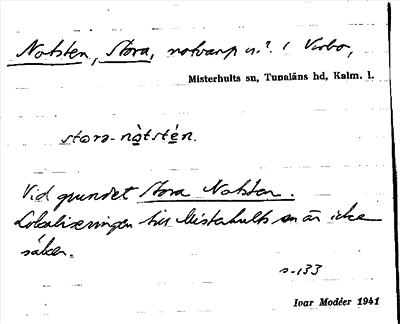 Notsten, Stora, notvarp n.? i Virbo,
Misterhults sn, Tunaläns hd, Kalm. l.
stora-nòtstén.
Vid grundet Stora Notsten.
Lokaliseringen till Mistehults sn är icke
säker.
s. 133
Ivar Modéer 1941